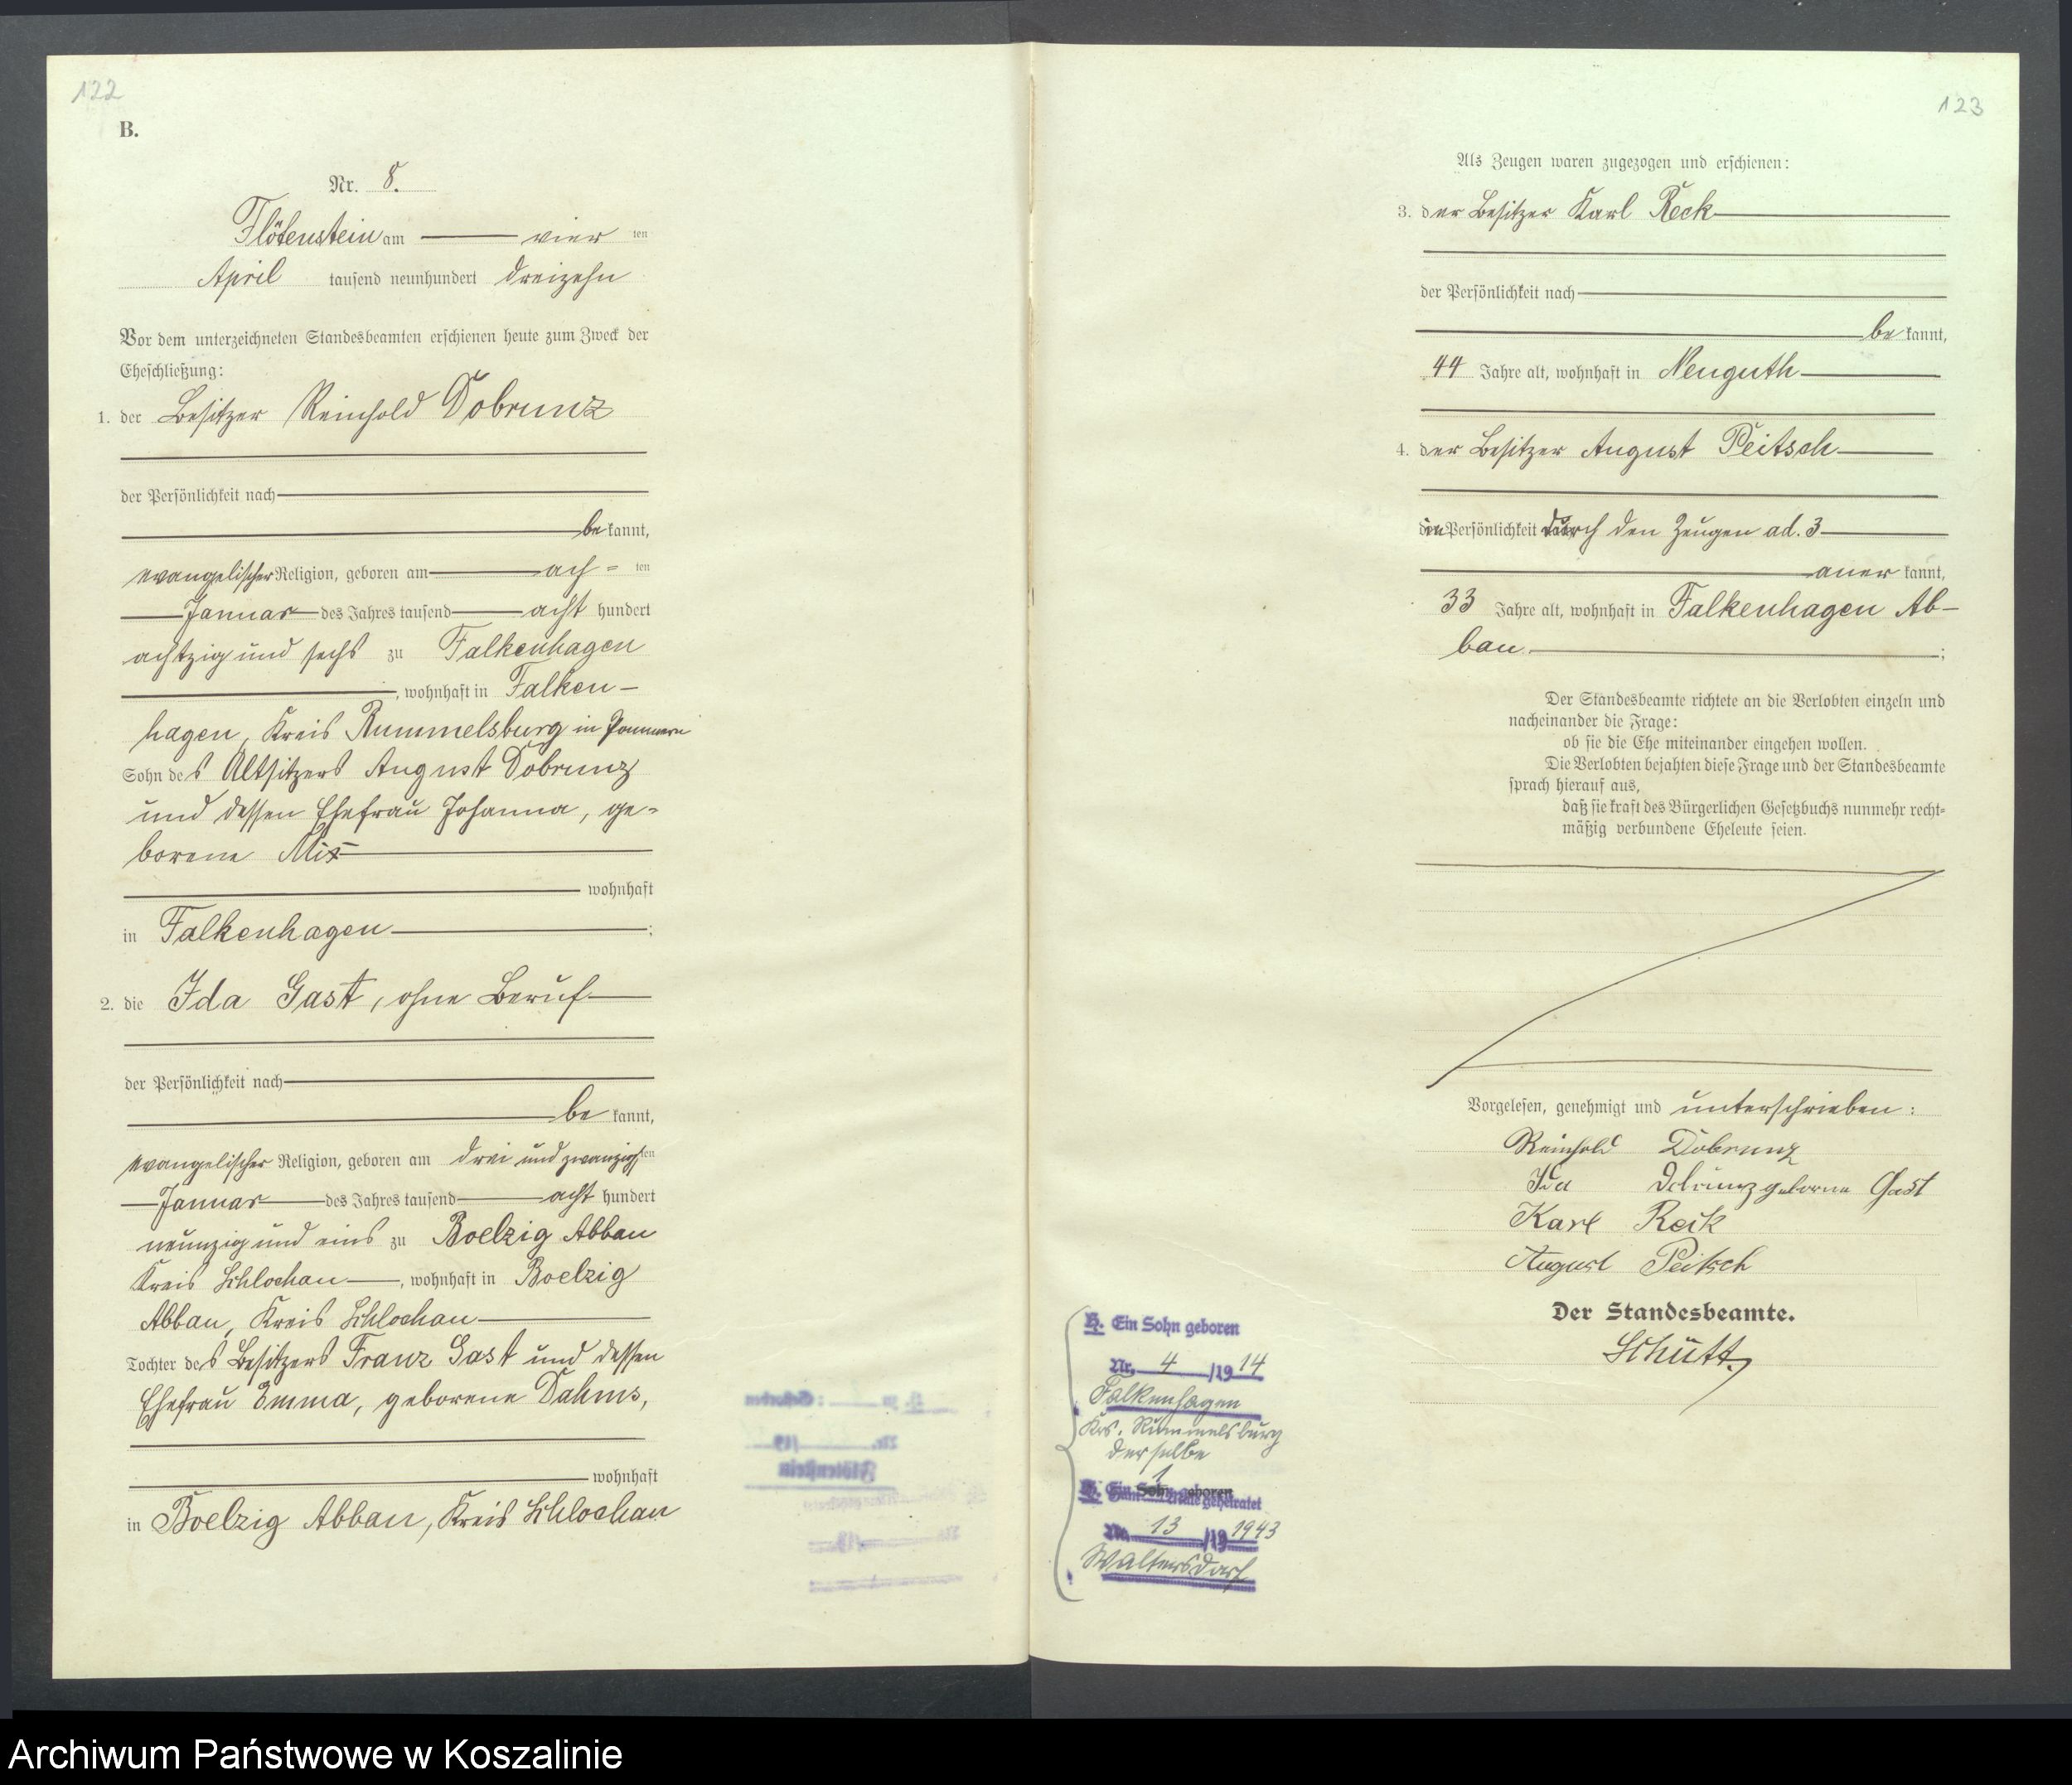 122
B.
Nr. 8.
Flötenstein am vier ten
April tausend neunhundert dreizehn
Vor dem unterzeichneten Standesbeamten erschienen heute zum Zweck der
Eheschließung:
1. der Besitzer Reinhold Dobrunz
der Persönlichkeit nach
be kannt,
evangelischer Religion, geboren am ach = ten
Januar des Jahres tausend acht hundert
achtzig und sechs zu Falkenhagen
, wohnhaft in Falken-
hagen, Kreis Rummelsburg in Pommern
Sohn des Altsitzers August Dobrunz
und dessen Ehefrau Johanna, ge=
borene Mix
wohnhaft
in Falkenhagen ;
2. die Ida Gast, ohne Beruf
der Persönlichkeit nach
be kannt,
evangelischer Religion, geboren am drei und zwanzigsten
Januar des Jahres tausend acht hundert
neunzig und eins zu Boelzig Abbau
Kreis Schlochau , wohnhaft in Boelzig
Abbau, Kreis Schlochau
Tochter des Besitzers Franz Gast und dessen
Ehefrau Emma, geborene Dahms,
wohnhaft
in Boelzig Abbau, Kreis Schlochau
123
Als Zeugen waren zugezogen und erschienen:
3. der Besitzer Karl Reck
der Persönlichkeit nach
be kannt,
44 Jahre alt, wohnhaft in Neuguth
4. der Besitzer August Peitsch
Persönlichkeit durch den Zeugen ad. 3
aner kannt,
33 Jahre alt, wohnhaft in Falkenhagen Ab-
bau. ;
Der Standesbeamte richtete an die Verlobten einzeln und
nacheinander die Frage:
ob sie die Ehe miteinander eingehen wollen.
Die Verlobten bejahten diese Frage und der Standesbeamte
sprach hierauf aus,
daß sie kraft des Bürgerlichen Gesetzbuchs nunmehr recht=
mäßig verbundene Eheleute seien.
Vorgelesen, genehmigt und unterschrieben:
Reinhold Dobrunz
Ida Dobrunz geborne Gast
Karl Reck
August Peitsch
Der Standesbeamte.
Schütt.
H. Ein Sohn geboren
Nr. 4 /1914
Falkenhagen
Krs. Rummelsburg
derselbe
1
geheiratet
Nr. 13 /19 1943
Waltersdorf
Archiwum Państwowe w Koszalinie